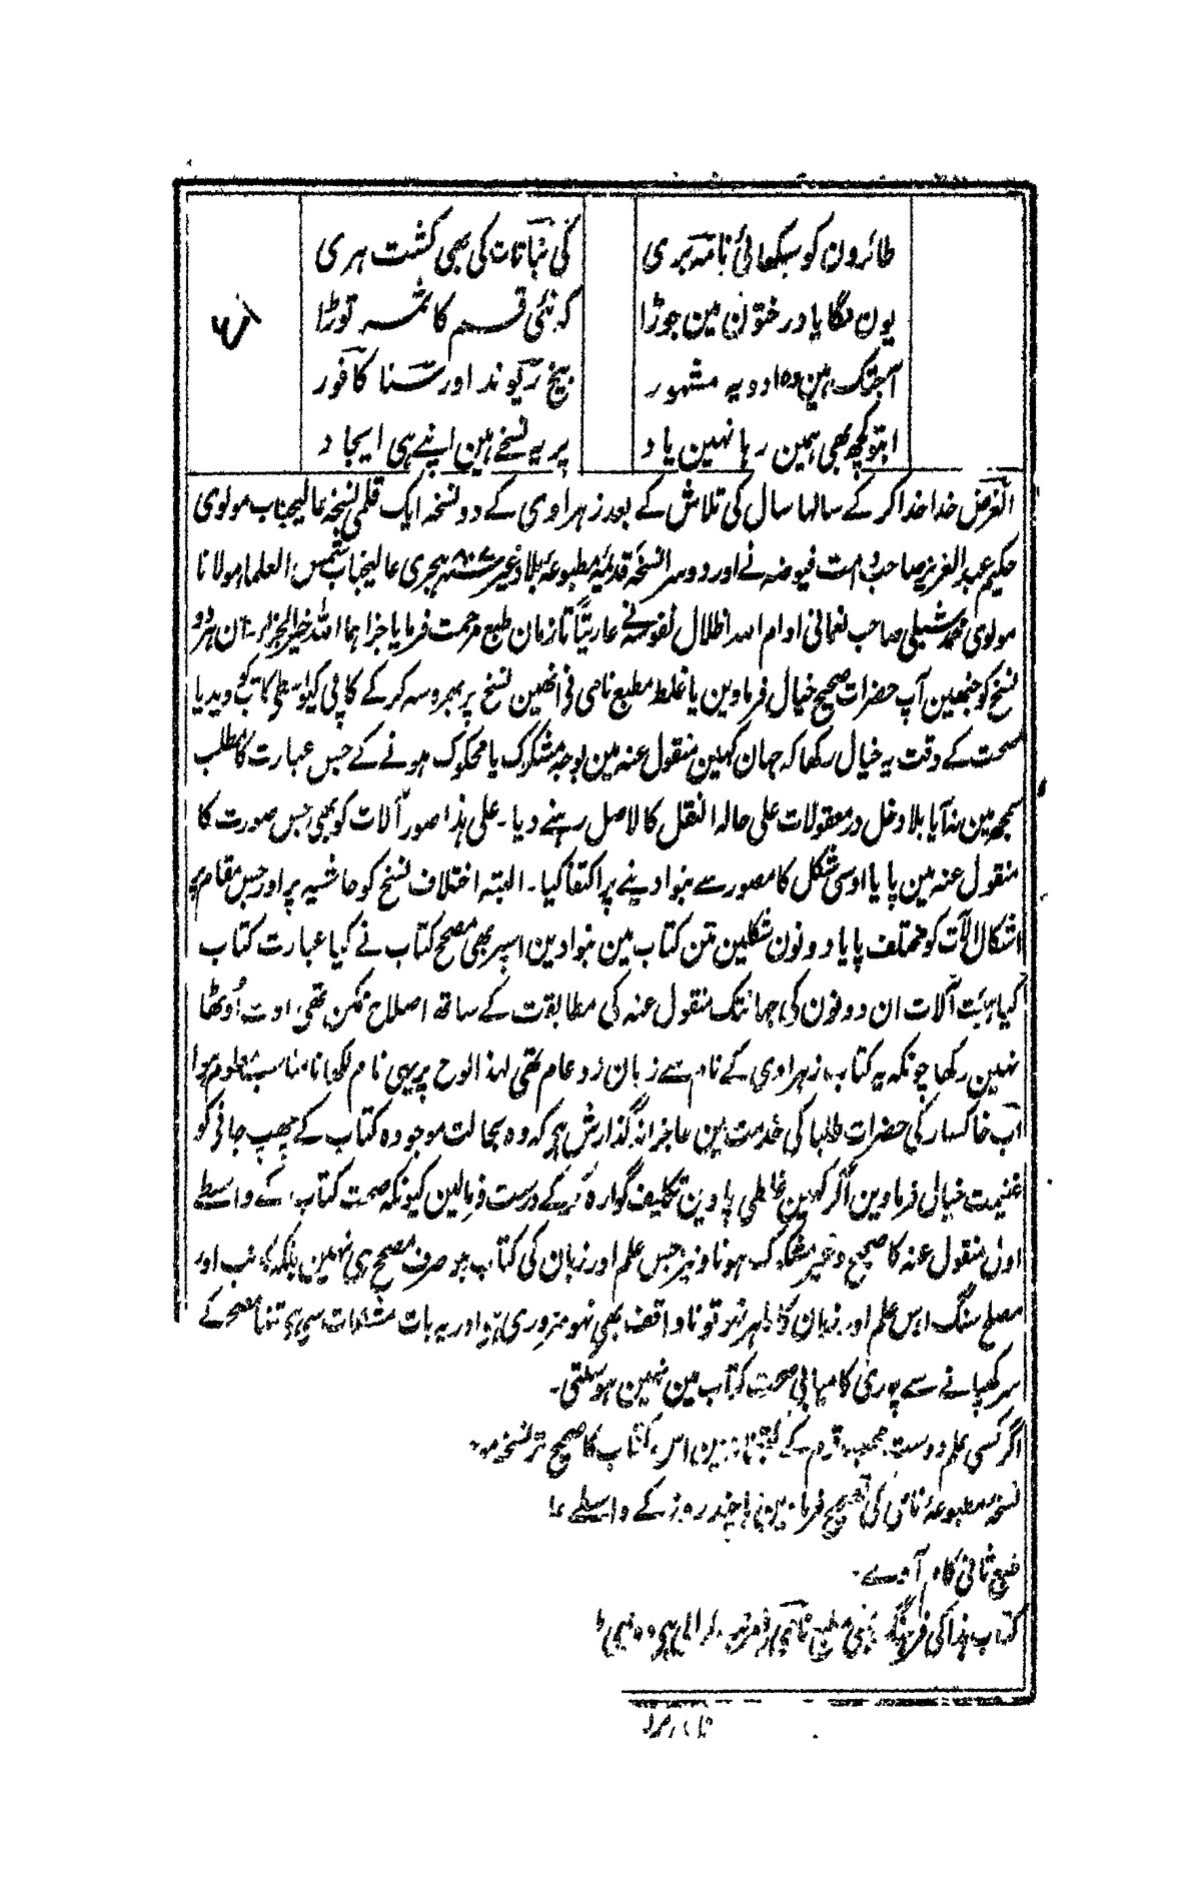 طائرون کو سکھائی نامہ بری
کی نباتات کی بھی کشت ہری
یون لگایا درختون مین جوڑا
کہ نئی قسم کا ثمر توڑا
آجتک ہین وہ ادویہ مشہور
بیخ ریوند اور سنا کافور
ابتو کچھ بھی ہمین رہا نہین یاد
پر یہ نسخے ہین اپنے ہی ایجاد
الغرض خدا خدا کر کے سالہا سال کی تلاش کے بعد زہراوی کے دو نسخہ ایک قلمی نسخہ عالیجناب مولوی
حکیم عبد العزیز صاحب دامت فیوضہ نے اور دوسرا نسخہ قدیمہ مطبوعہ بلاد غیر ہجری عالیجناب شمس العلما مولانا
مولوی محمد شبلی صاحب نعمانی ادام اللہ اظلال نے عاریتاً تا زمان طبع مرحمت فرمایا جزاہما اللہ خیر الجزاء۔ ان ہر دو
نسخ کو جنھین آپ حضرات صحیح خیال فرماوین یا غلط مطبع نامی نی انھین نسخ پر بھروسہ کر کے کاپی کیواسطے کاتب کو دیدیا
صحت کے وقت یہ خیال رکھا کہ جہان کہین منقول عنہ مین بوجہ مشکوک یا محکوک ہونے کے جس عبارت کا مطلب
سمجھ مین نہ آیا بلا دخل در معقولات علی حالہ النقل کالاصل رہنے دیا۔ علی ہذا صور آلات کو بھی جس صورت کا
منقول عنہ مین پایا اوسی شکل کا مصور سے بنوا دینے پر اکتفا کیا۔ البتہ اختلاف نسخ کو حاشیہ پر اور جس مقام پر
اشکال آلات کو مختلف پایا دونون شکلین متن کتاب مین بنوا دین اسپر بھی مصحح کتاب نے کیا عبارت کتاب
کیا ہیئت آلات ان دونون کی جہانتک منقول عنہ کی مطابقت کے ساتھ اصلاح ممکن تھی اوسے اُوٹھا
نہین رکھا چونکہ یہ کتاب زہراوی کے نام سے زبان زد عام تھی لہذا لوح پر یہی نام لکھانا مناسب معلوم ہوا
اب خاکسار کی حضرات طلبا کی خدمت مین عاجزانہ گذارش ہے کہ وہ بحالت موجودہ کتاب کے چھپ جانی کو
غنیمت خیال فرماوین اگر کہین غلطی پاوین تکلیف گوارہ کر کے درست فرمالین کیونکہ صحت کتاب کے واسطے
اولٰ منقول عنہ کا صحیح و غیر مشکوک ہونا و نیز جس علم اور زبان کی کتاب ہو صرف مصحح ہی نہین بلکہ کاتب اور
مصلح سنگ اس علم اور زبان کا ماہر نہو تو ناواقف بھی نہو ضروری ہے اور یہ بات مشکلات سے ہے تنہا مصحح کے
سر کھپانے سے پوری کامیابی صحت کتاب مین نہین ہوسکتی۔
اگر کسی علم دوست کے کتبخانہ مین اس کتاب کا صحیح تر نسخہ
نسخہ مطبوعہ نامی کی تصحیح فرما دین یا چند روز کے واسطے
طبع ثانی کام آوے۔
کتاب ہذا کی فرہنگ بھی مطبع نامی